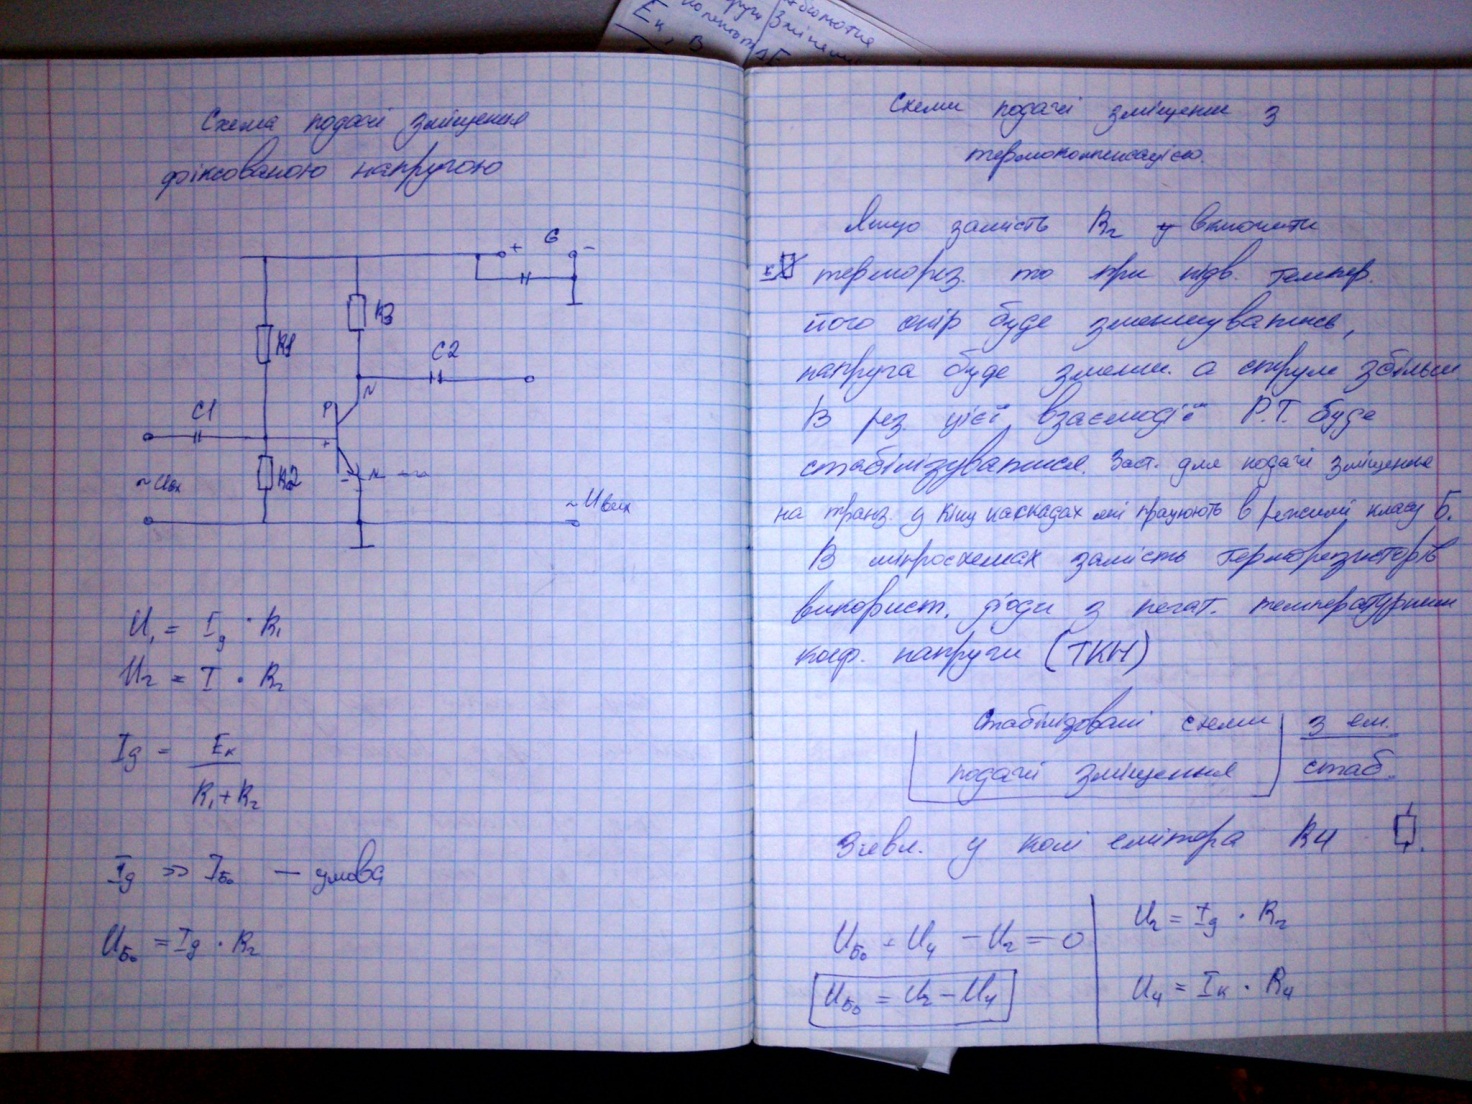 Схема подачі зміщення
фіксованою напругою
+ G -
R1
R3
C2
C1
P
N
+
-
N
R2
~Uвх
~Uвих
U₁ = I д · R₁
U₂ = I · R₂
Iд = Eк / R₁ + R₂
Iд >> IБ₀ — умова
UБ₀ = Iд · R₂
Eк, В
Схеми подачі зміщення з
термокомпенсацією.
Якщо замість R₂ включити
терморез. то при підв. темпер.
його опір буде зменшуватись,
напруга буде зменш. а струм збільш.
В рез цієї взаємодії Р.Т. буде
стабілізуватися. Заст. для подачі зміщення
на транз. у кінц каскадах які працюють в режимі класу Б.
В мікросхемах замість терморезисторів
використ. діоди з негат. температурним
коеф. напруги (ТКН)
Стабілізовані схеми з ем.
подачі зміщення стаб.
З'євл. у колі емітера R4
UБ₀ + U₄ - U₂ = 0
UБ₀ = U₂ - U₄
U₂ = Iд · R₂
U₄ = Iк · R₄